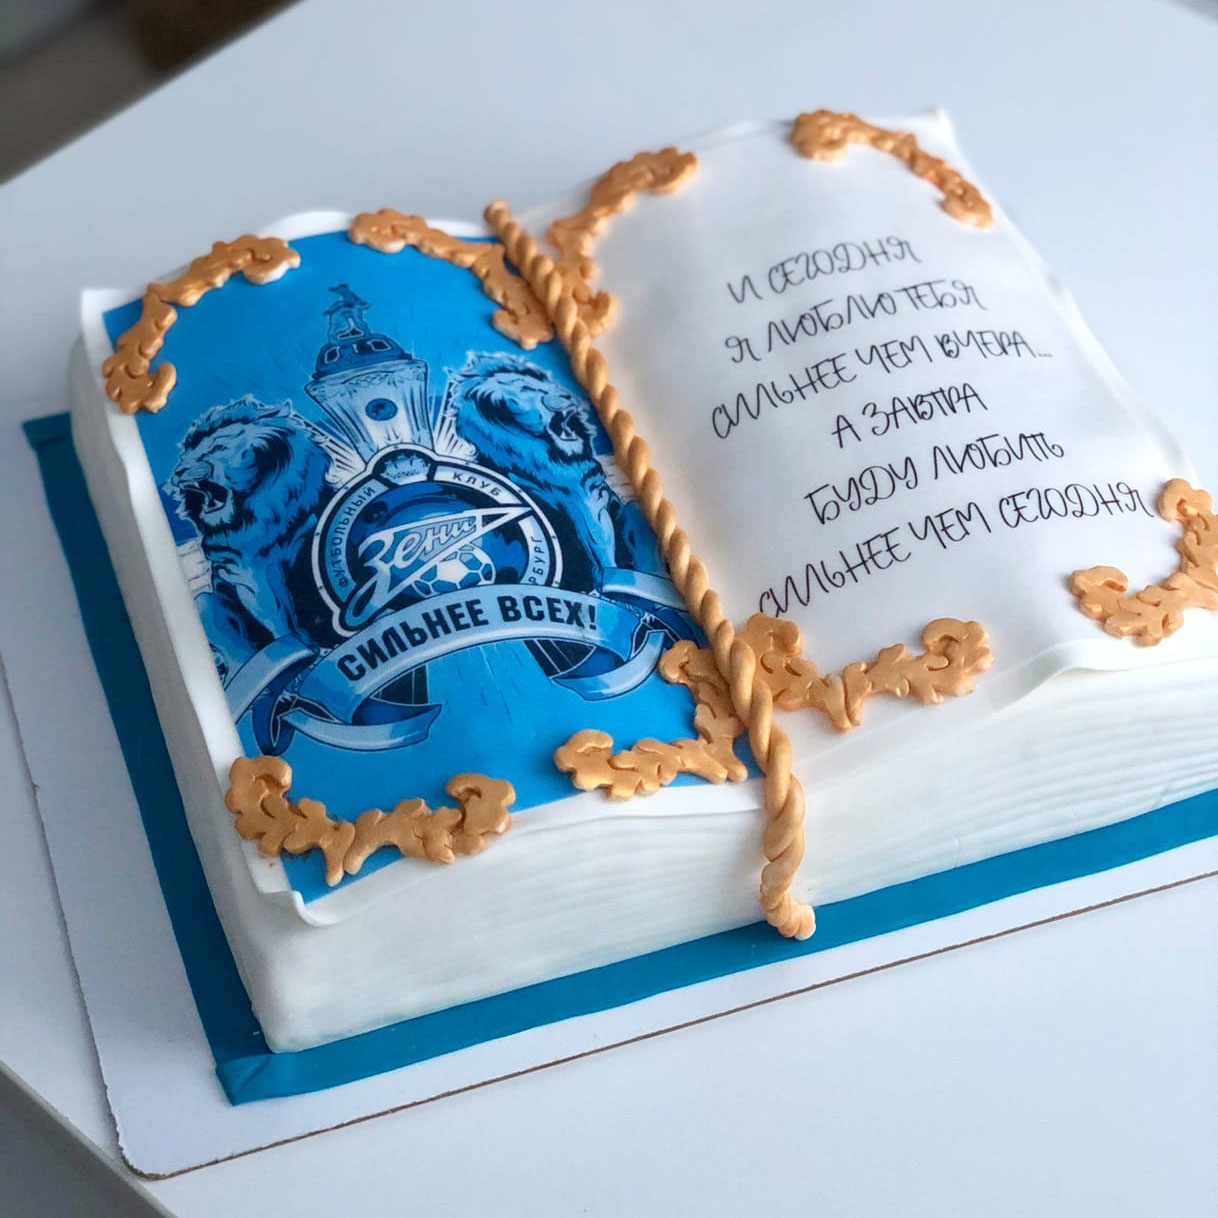 ФУТБОЛЬНЫЙ КЛУБ
Зенит
СИЛЬНЕЕ ВСЕХ!
И СЕГОДНЯ
Я ЛЮБЛЮ ТЕБЯ
СИЛЬНЕЕ ЧЕМ ВЧЕРА...
А ЗАВТРА
БУДУ ЛЮБИТЬ
СИЛЬНЕЕ ЧЕМ СЕГОДНЯ